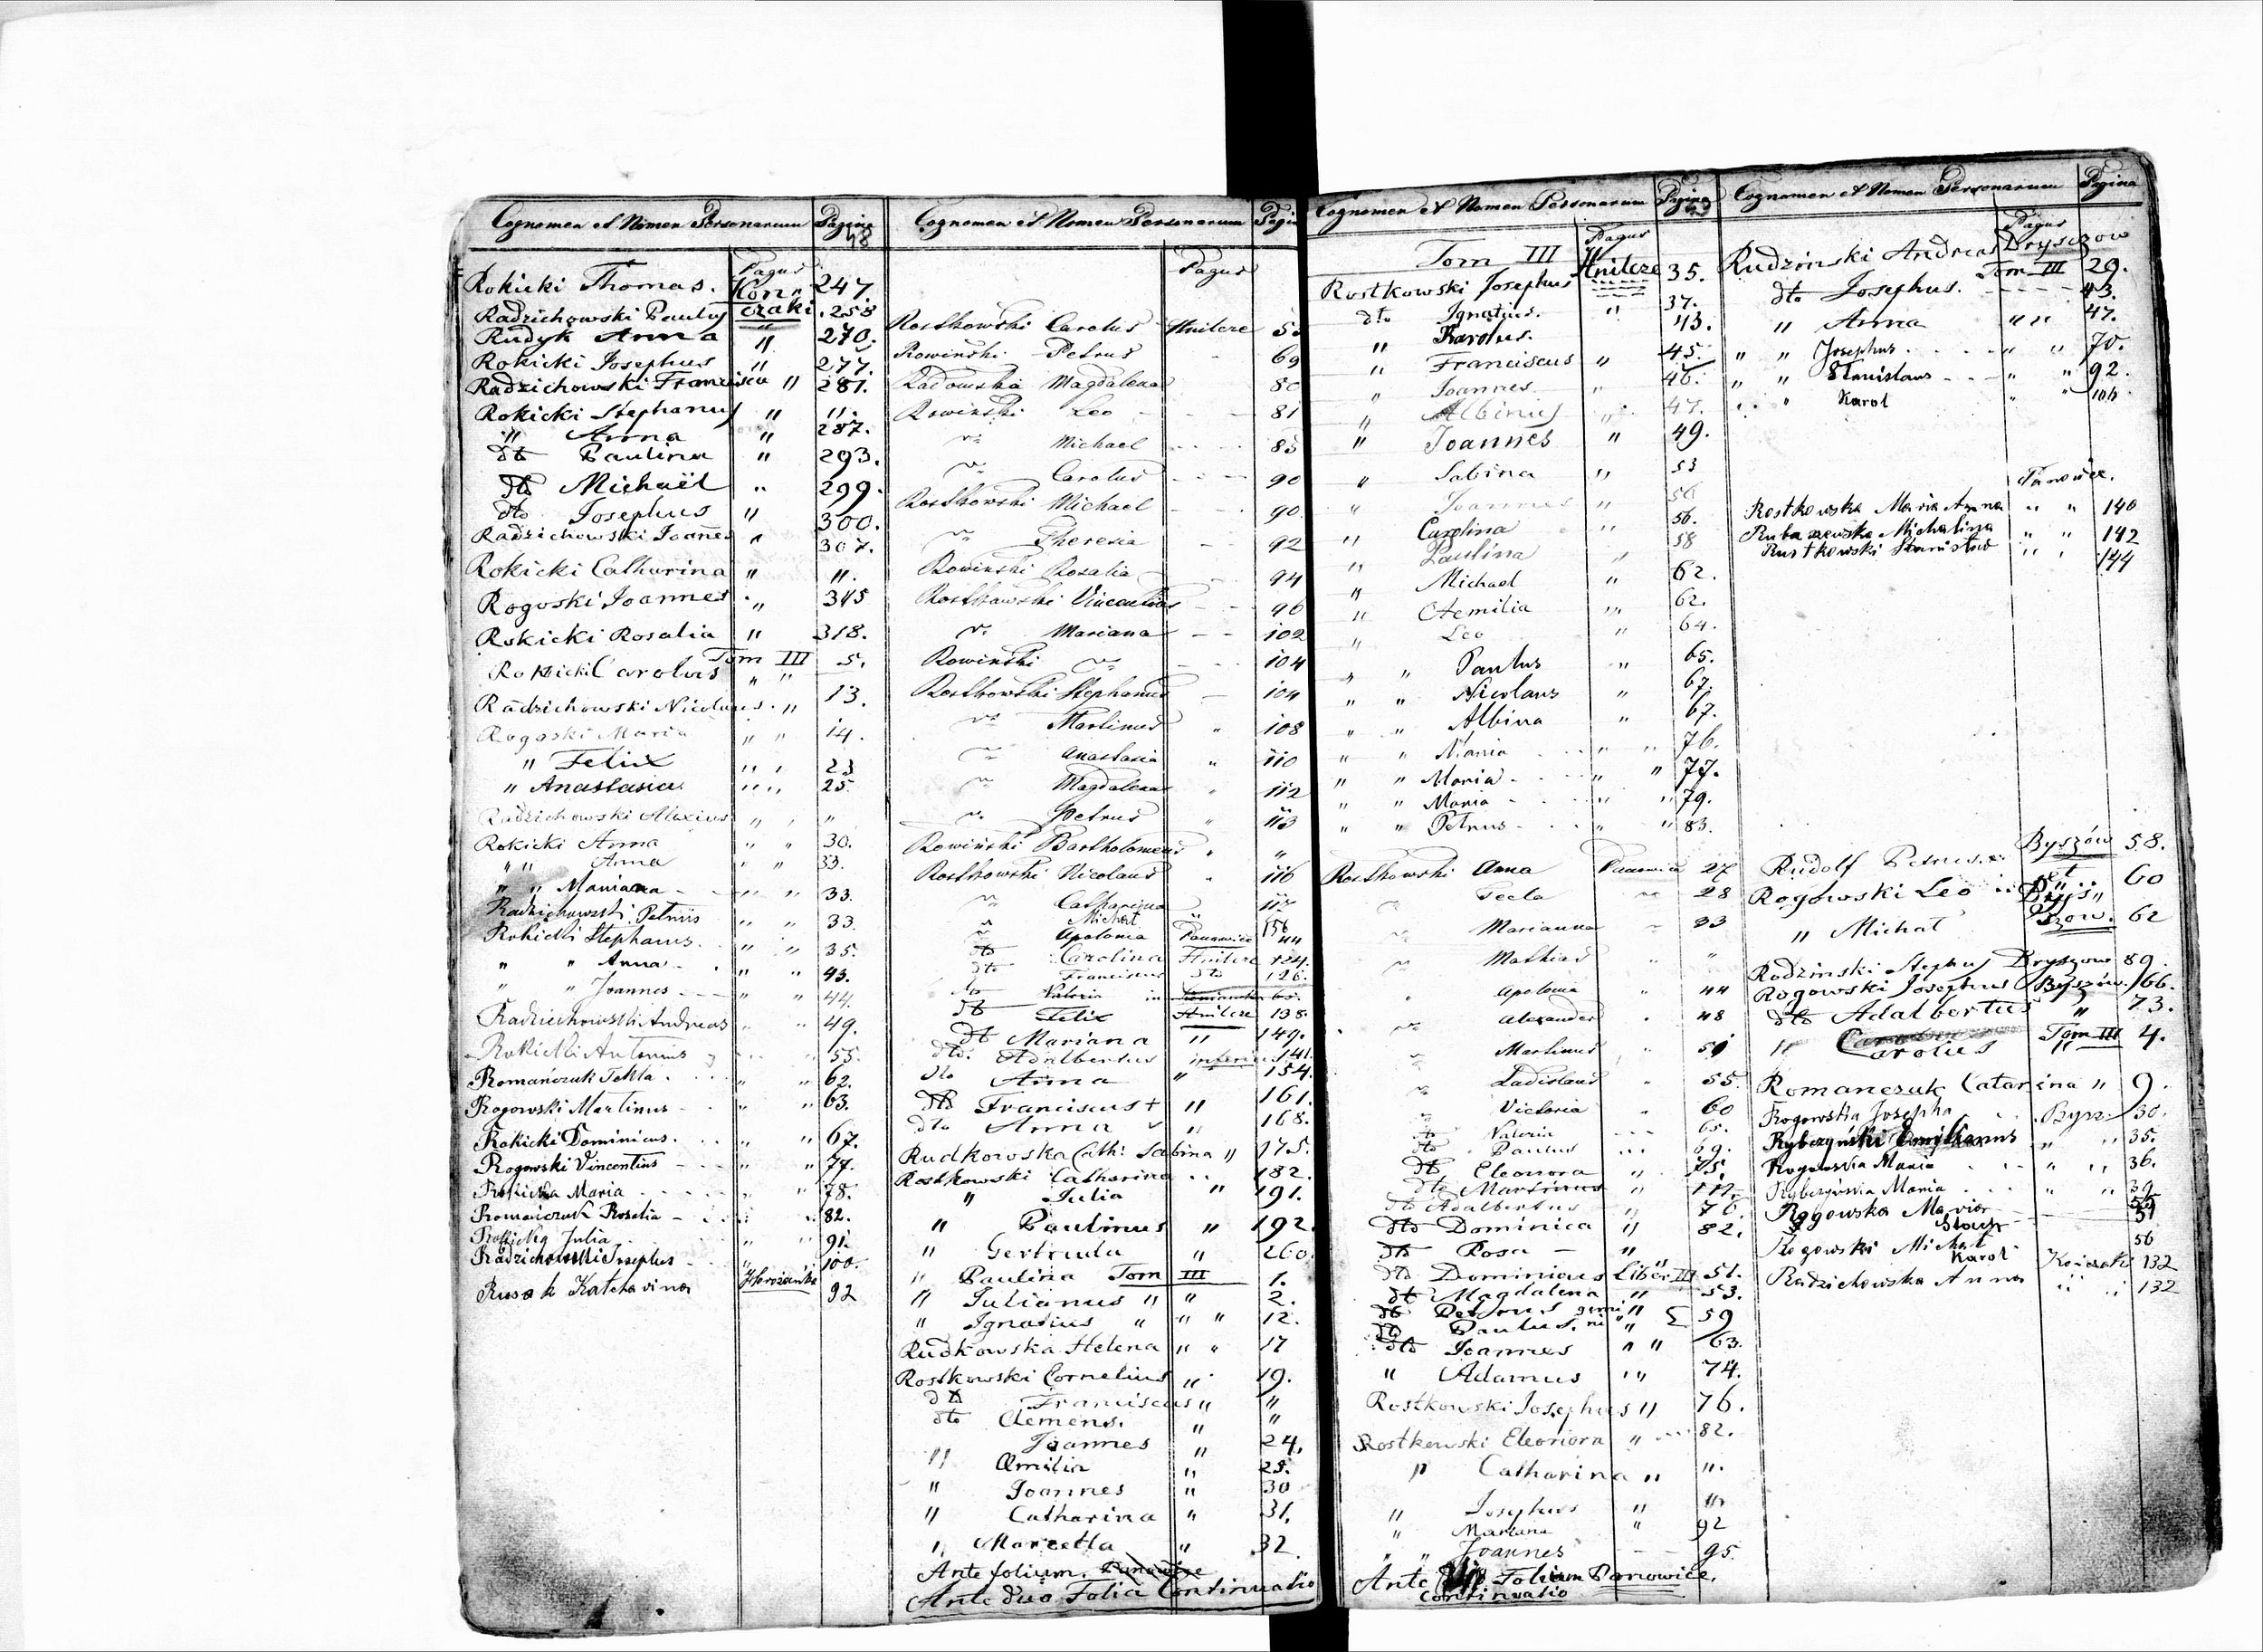 Cognomen et Nomen Personarum Pagina
48
Pagus
Rokicki Thomas. Kon 247.
Radzichowski Paulus czaki . 258
Rudyk Anna " 270.
Rokicki Josephus " 277.
Radzichowski Francisca " 281.
Rokicki Stephanus " ".
" Anna " 287.
dto Paulina " 293.
dto Michaël " 299.
dto Josephus " 300.
Radzichowski Joannes " 307.
Rokicki Catharina " ".
Rogoski Joannes " 315
Rokicki Rosalia " 318.
Tom III
Rokicki Carolus " " 5.
Radzichowski Nicolaus. " 13.
Rogoski Maria " " 14.
" Felix " " 23
" Anastasia " " 25.
Radzichowski Alexius " " "
Rokicki Anna " " 30.
" " Anna " " 33.
" " Mariana " " 33.
Radzichowski Petrus " " 33.
Rokicki Stephanus " " 35.
" " Anna " " 43.
" " Joannes " " 44.
Radzichowski Andreas " " 49.
Rokicki Antonius " " 55.
Romańczuk Tekla " " 62.
Rogowski Martinus " " 63.
Rokicki Dominicus. " " 67.
Rogowski Vincentius " " 77.
Rokicka Maria " " 78.
Romańczuk Rosalia " " 82.
Rokicka Julia " " 91.
Radzichowski Josephus " " 100.
Rusak Katharina Horożanka 92
Cognomen et Nomen Personarum Pagin
Pagus
Rostkowski Carolus Hnilcze
Rowiński Petrus 69
Radowska Magdalena 80
Rowiński Leo 81
" Michael 85
" Carolus 90
Rostkowski Michael 90
" Theresia 92
Rowinski Rosalia 94
Rostkowski Vincentius 96
" Mariana 102
Rowiński " 104
Rostkowski Stephanus 104
" Martinus " 108
" Anastasia " 110
" Magdalena " 112
" Petrus " 113
Rowiński Bartholomeus " "
Rostkowski Nicolaus " 116
" Catharina 117
" Michał " 156
" Apolonia Panowice 44
dto Carolina Hnilcze 124.
dto Franciscus dto 126.
dto Valeria in 65.
dto Felix Hnilcze 138.
dt Mariana " 149.
dto. Adalbertus inferius 141.
dto Anna " 154.
dto Franciscus + " 161.
dto Anna " 168.
Rudkowska Cath: Sabina " 175.
Rostkowski Catharina " 182.
" Julia " 191.
" Paulinus " 192.
" Gertruda " 260.
" Paulina Tom III 1.
" Julianus " " 2.
" Ignatius " " " 12.
Rudkowska Helena " " 17
Rostkowski Cornelius " 19.
dto Franciscus " "
dto Clemens. " "
" Joannes " 24.
" Æmilia " 25.
" Joannes " 30
" Catharina " 31.
" Marcella " 32.
Ante folium. Panowice
Ante duo Folia Continuatio
Cognomen et Nomen Personarum Pagina
49
Tom III Pagus
Rostkowski Josephus Hnilcze 35.
dto Ignatius. " 37.
" Karolus. 43.
" Franciscus " 45.
" Joannes " 46.
" Albinus " 47.
" Joannes " 49.
" Sabina " 53
" Joannes " 56
" Carolina " 56.
" Paulina " 58
" Michael " 62.
" Aemilia " 62.
" Leo " 64.
" " Paulus " 65.
" " Nicolaus " 67.
" " Albina " 67.
" " Maria " " 76.
" " Maria " " 77.
" " Maria " " 79.
" " Petrus " " 83.
Rostkowski Anna Panowice 27
" Tecla " 28
" Marianna " 33
" Mathias " "
" Apolonia " 44
" Alexander " 48
" Martinus " 51
" Ladislaus " 55.
" Victoria " 60
dto Valeria 65.
dto Paulus 69.
dto Eleonora " 75.
dto Martinus "
dto Adalbertus " 76.
dto Dominica " 82.
dto Rosa "
dto Dominicus Liber III 51.
dt Magdalena " 53.
dto Petrus gemi "
dto Paulus. ni " 59
dto Joannes " " 63.
" Adamus " " 74.
Rostkowski Josephus " 76.
Rostkowski Eleonora " 82.
" Catharina " ".
" Josephus " "
" Mariana " 92
" " Joannes 95.
Ante Folium Panowice.
Continuatio
Cognomen et Nomen Personarum Pagina
Pagus
Rudzinski Andreas Dryszczow
Tom III 29.
dto Josephus. 43.
" Anna " " 47.
" " Josephus " " 70.
" " Stanislaus " " 92.
" " Karol " " 106
Panowice.
Rostkowska Maria Anna " " 140
Rubaszewska Michalina " " 142
Rustkowski Stanisław " " 144
Rudolf Petrus Byszów 58.
et
Rogowski Leo " 60
" Michał 62
Rodzinski Stephus Dryszow 89.
Rogowski Josephus Byszów. 66.
dto Adalbertus " 73.
" Carolus Tom III 4.
Romanczuk Catarina " 9.
Rogowska Josepha Bysz. 30.
Rybczyński Emilianus " " 35.
Rogowska Maria " " 36.
Rybczyńska Maria " " 39
Rogowska Maria 51
Rogowski Michał 56
Karol
Radzichowska Anna " " 132